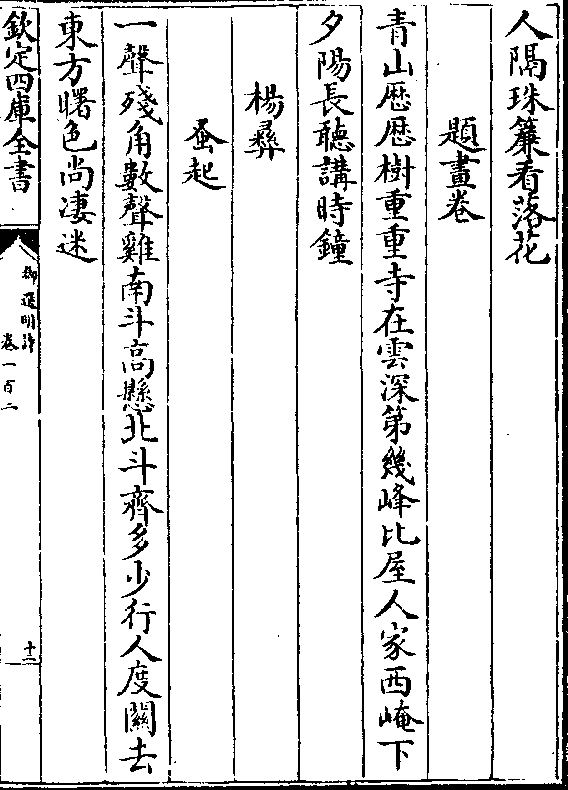 人隔珠簾看落花
題畫卷
青山厯厯樹重重寺在雲深第幾峰比屋人家西崦下
夕陽長聽講時鐘
楊彝
蚤起
一聲殘角數聲雞南斗髙懸北斗齊多少行人度闗去
東方曙色尚凄迷
欽定四庫全書
御選明詩
卷一百二
十二